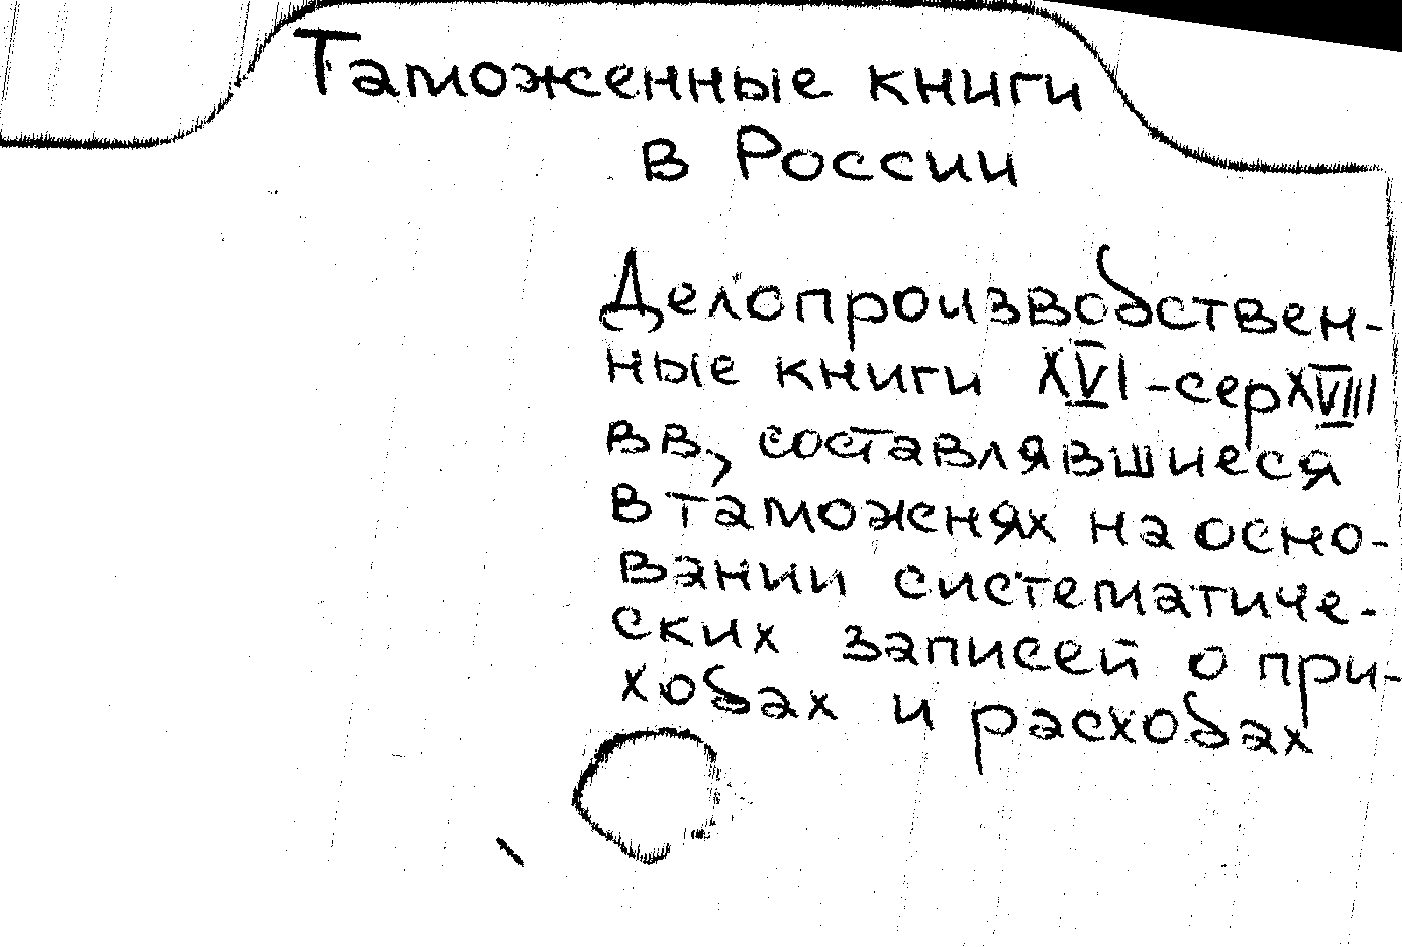 Таможенные книги
в России
Делопроизводствен-
ные книги XVI-сер XVIII
вв, составлявшиеся
в таможнях на осно-
вании систематиче-
ских записей о при-
ходах и расходах